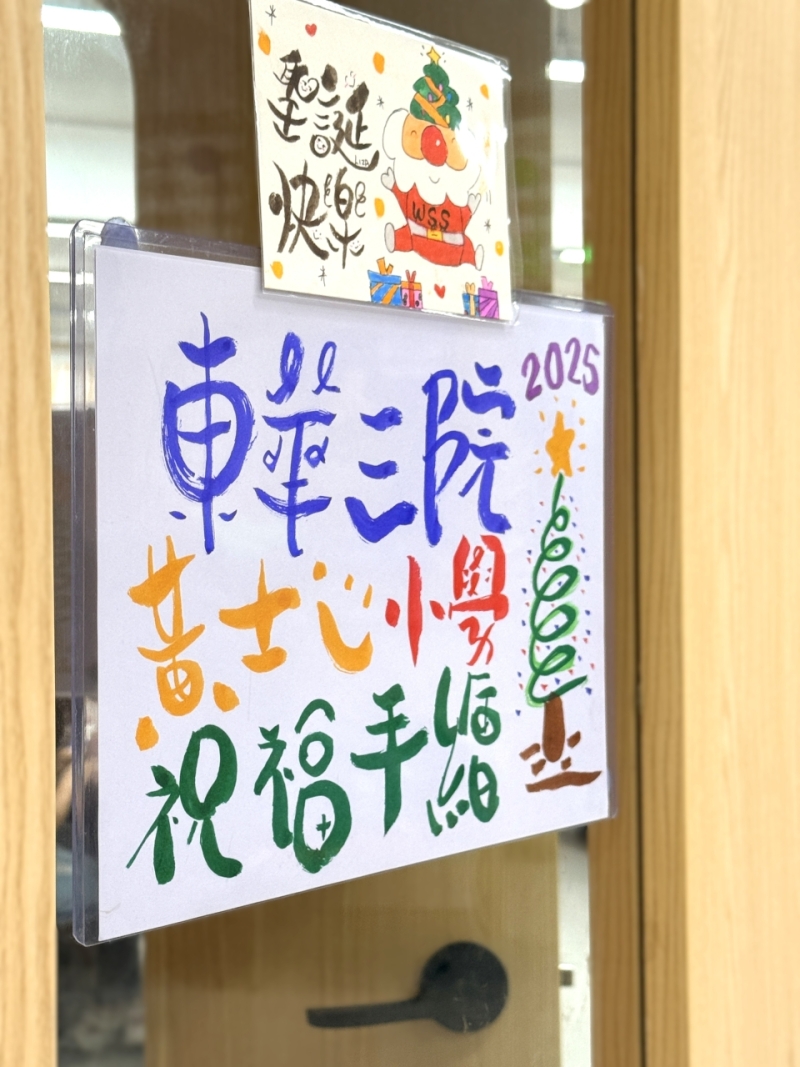 聖誕
快樂
LIZA
WSS
2025
東華三院
黃士心小學
祝福手繪